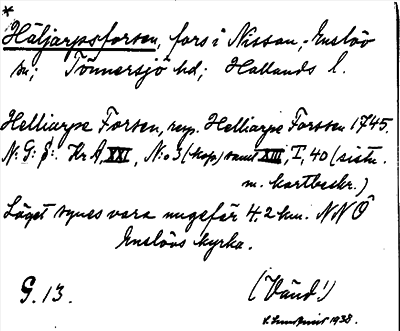 *
Häljarpsforsen, fors i Nissan, Enslöv
sn; Tönnersjö hd; Hallands l.
Helliarpe Forsen, resp. Helliarpe Forssen 1745.
N: G: §: Kr A, XXI, N:o 3 (kop) samt XIII, I, 40 (sistn.
m. kartbeskr.)
Läget synes vara ungefär 4,2 km. NNÖ
Enslövs kyrka.
G. 13.
(Vänd!)
1938.